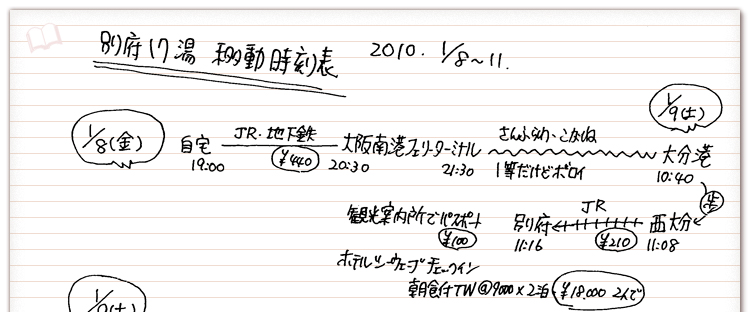 別府17湯 移動時刻表 2010. 1/8~11.
1/9(土)
1/8(金) 自宅 JR・地下鉄 大阪南港フェリーターミナル さんふらわあ・こばると 大分港
19:00 ¥440 20:30 21:30 1等だけどボロイ 10:40
歩
観光案内所でパスポート 別府 JR 西大分
¥100 11:16 ¥210 11:08
ホテルシーウェーブ チェックイン
朝食付TW@9000×2泊 ¥18,000 2人で
1/9(土)